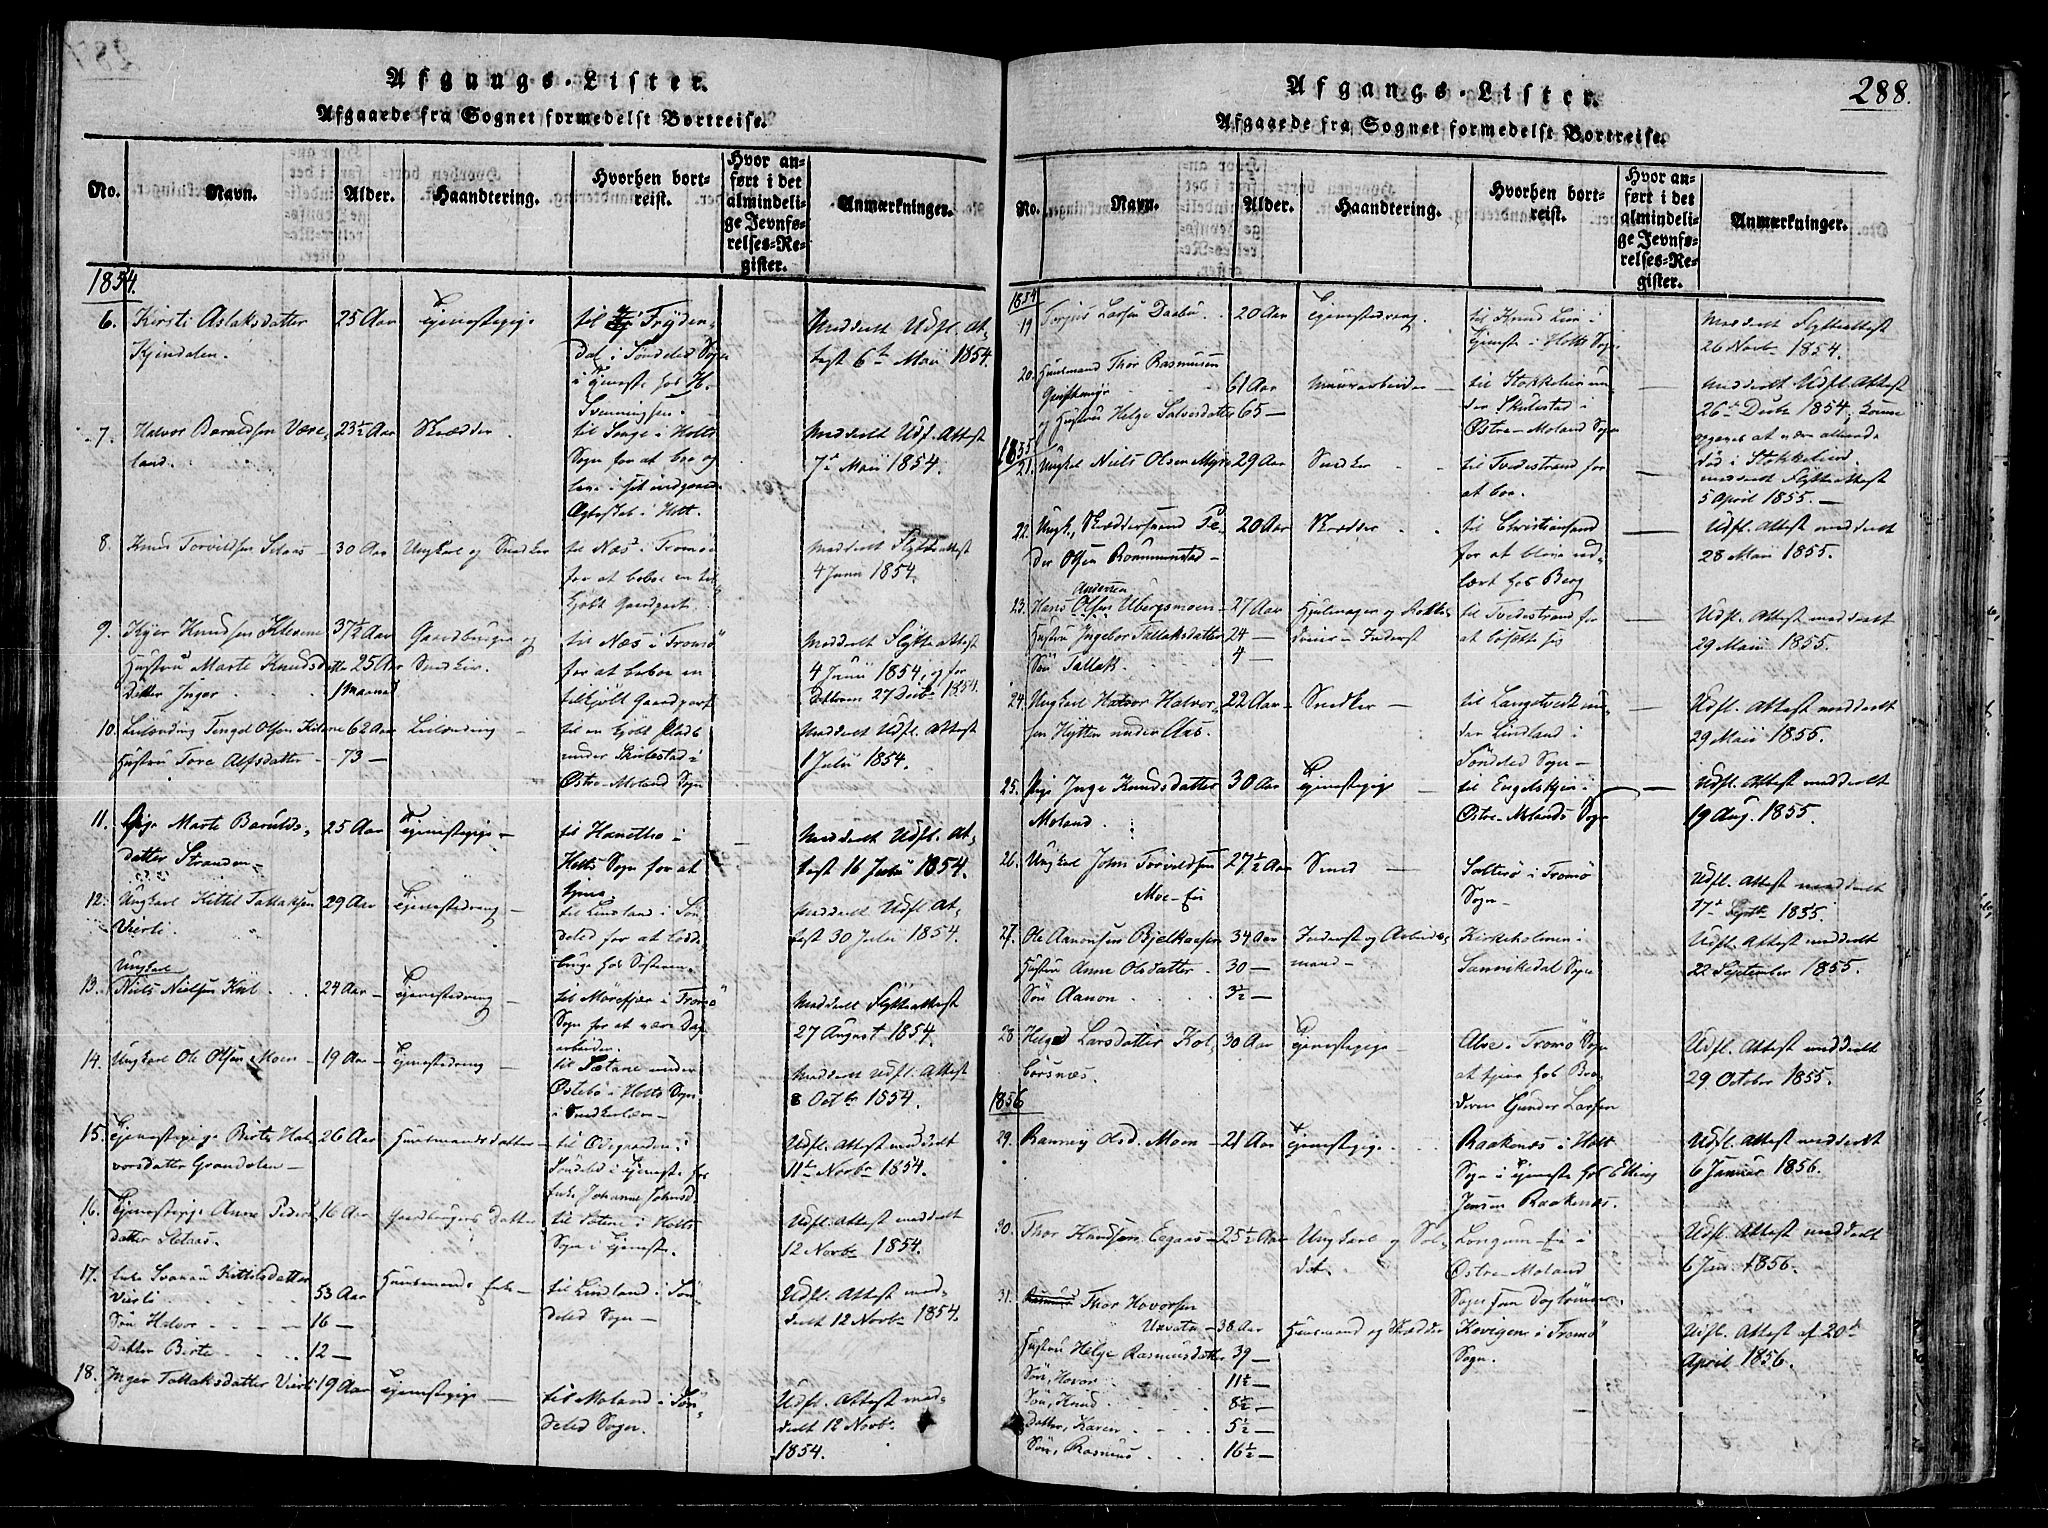 Afgangs-Lister.
Afgaaede fra Sognet formedelst Bortreise.
No.
Navn.
Alder.
Haandtering.
Hvorhen bort-
reist.
Hvor an-
ført i det
almindeli-
ge Jevnfø-
relses-Re-
gister.
Anmærkninger.
1854.
6. Kirsti Aslaksdatter 25 Aar Tjenestepige til Fryden-
dal i Søndeled Sogn
i Tjeneste hos H.
Svenningsen.
Meddeelt Udfl. At-
test 6te Maii 1854.
7. Halvor Baraldsen 23½ Aar Skrædder. til Songe i Holts
Sogn for at boe og
Meddeelt Udfl. Attest
7de Maii 1854.
8. Knud Torvildsen Selaas 30 Aar Ungkarl og Snedker til Næs i Tromø
for at beboe en til-
kjøbt Gaardpart
Meddeelt Flytteattest
4 Juni 1854.
9. Knudsen Klevene 37½ Aar Gaardbruger og
Hustru Marte Knudsd 25 Aar Snedker.
Datter Inger 1 Maaned
til Næs i Tromø
for at beboe en
tilkjøbt Gaardpart
Meddeelt Flytteattest
4 Junii 1854, og for
27 Decbr 1854.
10. Tengel Olsen 62 Aar
Hustru Tore Alfsdatter 73 —
til en kjøbt Plads
under Skulestad i
Østre-Moland Sogn
Meddeelt Udfl. Attest
1 Julii 1854.
11. Pige Marte Baralds-
datter Stranden 25 Aar Tjenestepige
til i
Holts Sogn for at
tjene.
Meddeelt Udfl. At-
test 16 Julii 1854.
12. Ungkarl Kittil Tallaksen
Vierli. 29 Aar Tjenestedreng
til Lindland i Søn-
deled for at
hos Søsteren.
Meddeelt Udfl. At-
test 30 Julii 1854.
13. Ungkarl
Niels Nielsen 24 Aar Tjenestedreng
til Mørefjær i Tromø
Sogn for at være Dag-
arbeider.
Meddeelt Flytteattest
27 August 1854.
14. Ungkarl Ole Olsen Moen 19 Aar Tjenestedreng
til Sætane under
Østebø i Holts Sogn
i Snedkerlære
Meddeelt Udfl. Attest
8 Octbr 1854.
15. Tjenestepige Birte Hal-
vorsdatter Grandalen 26 Aar Huusmandsdatter
til Ødegaarden i
Søndeled i Tjeneste hos
Enke Johanne Johnsd.
Udfl. Attest meddeelt
11te Novbr 1854.
16. Tjenestepige Anne Peders-
datter Selaas. 16 Aar Gaardbrugers Datter
til Sætene i Holts
Sogn i Tjeneste.
Udfl. Attest meddeelt
12 Novbr 1854.
17. Enke Svanau Kittilsdatter
Vierli 53 Aar Huusmands Enke
Søn Halvor 16 —
Datter Birte 12 —
til Lindland i Søn-
deled Sogn
Udfl. Attest med-
deelt 12 Novbr 1854.
18. Inger Tallaksdatter Vierli 19 Aar Tjenestepige
til Moland i Søn-
deled Sogn.
Udfl. Attest med-
deelt 12 Novbr.
1854.
288.
Afgangs-Lister.
Afgaaede fra Sognet formedelst Bortreise.
No.
Navn.
Alder.
Haandtering.
Hvorhen bort-
reist.
Hvor an-
ført i det
almindeli-
ge Jevnfø-
relses-Re-
gister.
Anmærkninger.
1854
19 Torjus Larsen Daabu. 20 Aar Tjenestedreng. til Knud Lien i
Tjeneste i Holts Sogn
Meddeelt Flytteattest
26 Novbr 1854.
20. Huusmand Thor Rasmussen
61 Aar Muurarbeider
og Hustru Helge Salvesdatter 65 —
til Stokkeleien un-
der Skulestad i
Østre-Moland Sogn
Meddeelt Udfl. Attest
26de Decbr 1854,
1855
21. Ungkarl Niels Olsen Myre 29 Aar Snedker til Tvedestrand for
at boe.
Meddeelt Flytteattest
5 April 1855.
22. Ungk., Skræddersvend Pe-
der Olsen 20 Aar Skrædder
til Christiansand
for at blive ud-
lært hos Berg
Udfl. Attest meddeelt
28 Maii 1855.
23. Hans Andersen Ubergsmoen 27 Aar
Hustru Ingebor Tallaksdatter 24 —
Søn Tallak. 4 —
Hjulmager og Rokke-
dreier – Inderst
til Tvedestrand for
at bosætte sig
Udfl. Attest meddeelt
29 Maii 1855.
24. Ungkarl Halvor Halvor-
sen Hytten under Aas. 22 Aar Snedker
til Langetvedt un-
der Lindland i
Søndeled Sogn
Udfl. Attest meddeelt
29 Maii 1855.
25. Pige Inge Knudsdatter
Moland. 30 Aar Tjenestepige
til Engelskjøn i
Østre-Molands Sogn
Udfl. Attest meddeelt
19 Aug. 1855.
26. Ungkarl John Torvildsen
Moe-Eie 27½ Aar Smed
Salterø i Tromø
Sogn
Udfl. Attest meddeelt
17de Septbr 1855.
27. Ole Aanonsen Bjelkaasen 34 Aar Inderst og Arbeids-
mand
Hustru Anne Olsdatter 30 —
Søn Aanon 3½ —
Kirkeholmen i
Sannikedal Sogn
Udfl. Attest meddeelt
22 September 1855.
28. Helge Larsdatter Kol-
börsnæs. 30 Aar Tjenestepige
Alve i Tromø Sogn
at tjene hos Bro-
deren Gunder Larsen
Udfl. Attest meddeelt
29 October 1855.
1856
29. Olsd. Moen 21 Aar Tjenestepige
Raakenæs i Holt
Sogn i Tjeneste hos Elling
Jensen Raakenæs.
Udfl. Attest meddeelt
6 Januar 1856.
30. Thor Knudsen Eegaas 25½ Aar Ungkarl og Sol-
dat.
Longum-Eie i
Østre-Moland
Sogn som Daglønner.
Udfl. Attest meddeelt
6 Jun 1856.
31. Thor Hovorsen
Uavatn 38 Aar Huusmand og Skrædder
Hustru Helge Rasmusdatter 39 —
Søn, Hovor 11½ —
Søn, Knud 8½ —
Datter, Karen 5½ —
Søn, Rasmus 16½ —
Kovigen i Tromø
Sogn.
Udfl. Attest af 20de
April 1856.